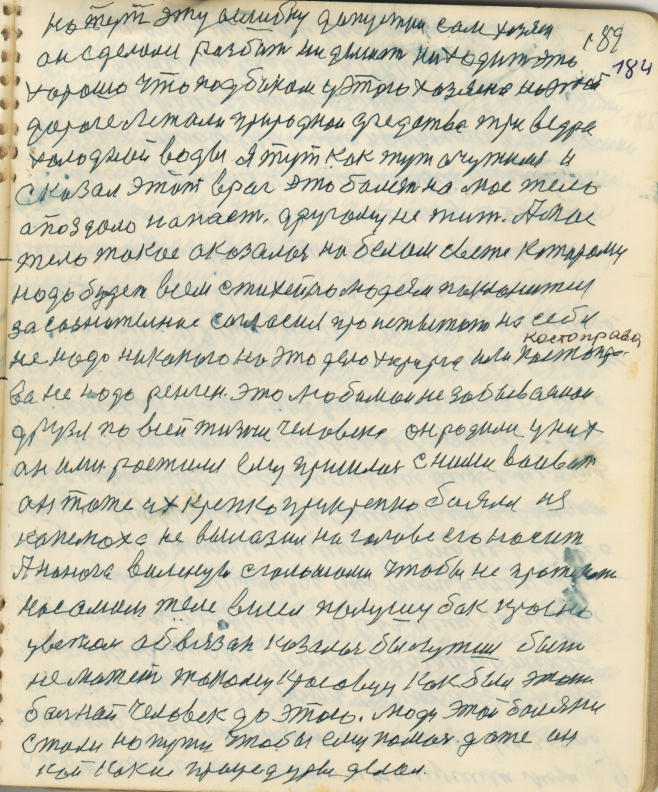 на тут эту ошибку допустил сам хозяин 189
он сделали разбит ни делает находит это 184
хорошо что под боком у этого хозяена на этой
дороге лежали природной средства три ведра
холодной воды я тут как тут очутился и
сказал этот враг это болезнь на мое тело
опоздало напаст. другому не жит. А мое
тело такое оказалос на белом свете которому
надо будет всем стихейно людям поклонится
за сознателние согласия про испытат на себе
костоправа
не надо никакого на это дело хирурга или костопра-
ва не надо ренген. это любимаи не забываемаи
друзя по всей жизни человека они родили у них
он ими растился ему пришлос с ними воеват
он тоже их крепко прикрепко боялся из
капелюха не вылазил на голове его носит
А на ноги валенки с голошами чтобы не
на самом теле висел полушубак красно
цветком обвязан казалос бы лутши быт
не может такому красавцу как был этот
болной человек до этого. люди этой болезни
стали на пути чтобы ему помоч. даже он
кой какие процедуры делал.